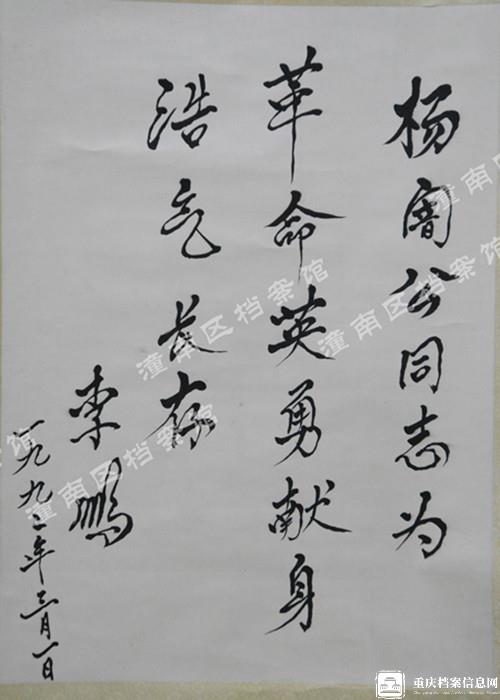 杨闇公同志为
革命英勇献身
浩气长存
李鹏
一九九二年三月一日
潼南区档案馆
潼南区档案馆
潼南区档案馆
重庆档案信息网